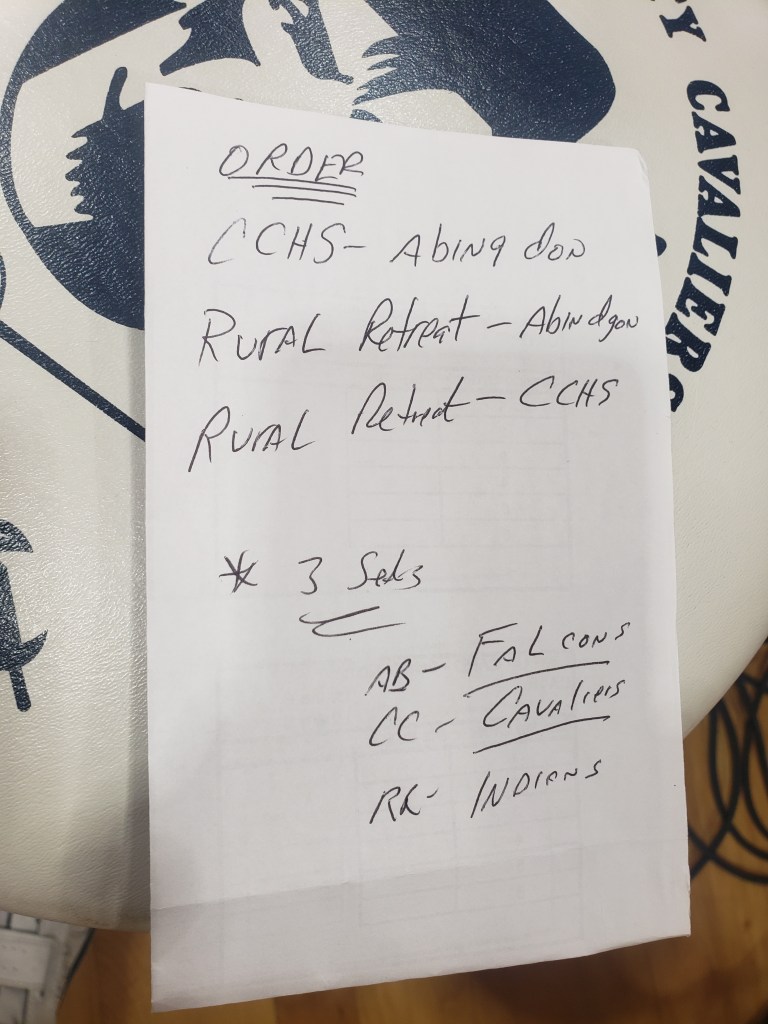 CY CAVALIERS
ORDER
CCHS - Abingdon
RURAL Retreat - Abindgon
RURAL Retreat - CCHS
* 3 Sets
AB - FALCONS
CC - CAVAliers
RR - INDIANS